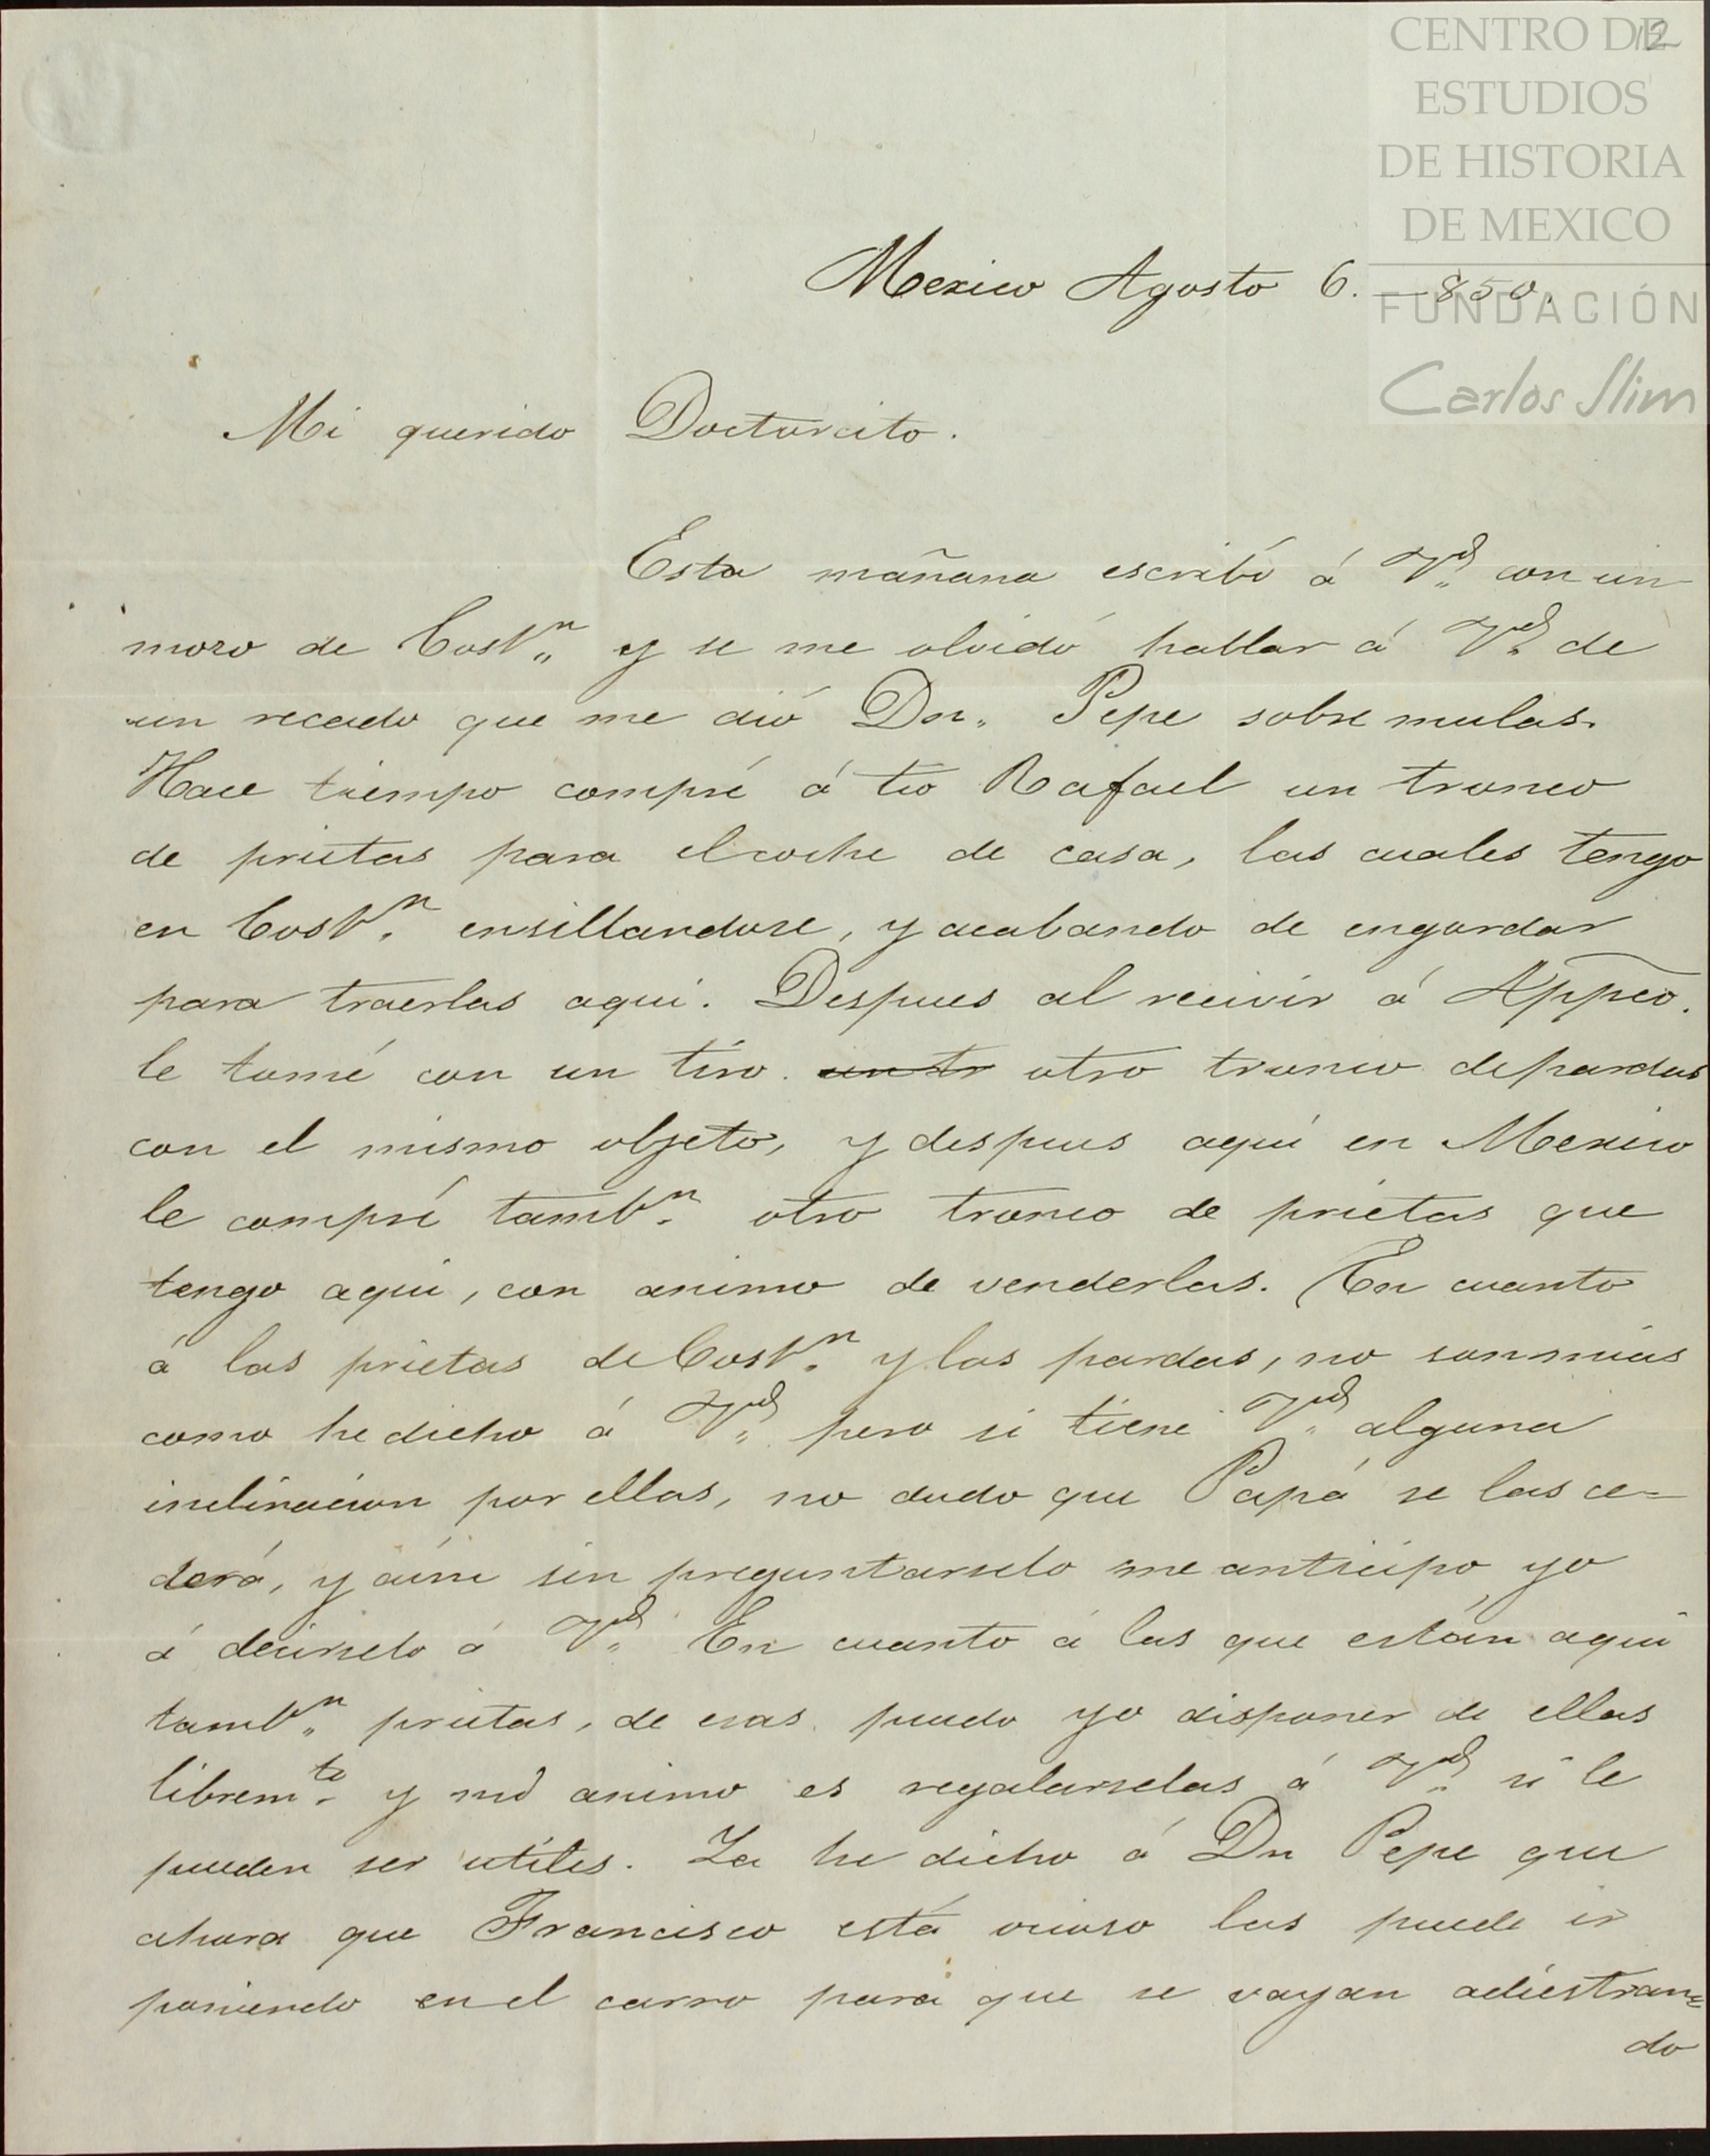 12
CENTRO DE
ESTUDIOS
DE HISTORIA
DE MEXICO
FUNDACIÓN
Carlos Slim
Mexico Agosto 6.—850.
Mi querido Doctorcito.
Esta mañana escribí á Vd. con un
mozo de Cost.n y se me olvidó hablar á Vd. de
un recado que me dió Dn. Pepe sobre mulas.
Hace tiempo compré á tio Rafael un tronco
de prietas para el coche de casa, las cuales tengo
en Cost.n ensillandose, y acabando de engordar
para traerlas aqui. Despues al recivir á Appco.
le tomé con un tiro. un tr otro tronco de pardas
con el mismo objeto, y despues aquí en Mexico
le compré tamb.n otro tronco de prietas que
tengo aqui, con animo de venderlas. En cuanto
á las prietas de Cost.n y las pardas, no son mias
como he dicho á Vd. pero si tiene Vd. alguna
inclinacion por ellas, no dudo que Papá se las ce=
derá, y aún sin preguntarselo me anticipo yo
á decirselo á Vd. En cuanto á las que están aqui
tamb.n prietas, de esas puedo yo disponer de ellas
librem.te y mi animo es regalarselas á Vd. si le
pueden ser utiles. Ya he dicho á Dn Pepe que
ahora que Francisco está ocioso las puede ir
poniendo en el carro para que se vayan adiestran=
do